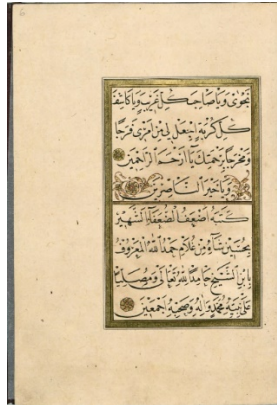 نَجْوٰى وَيَا صَاحِبَ كُلِّ غَرِيبٍ وَيَا كَاشِفَ
كُلِّ كُرْبَةٍ اِجْعَلْ لِى مِنْ اَمْرِى فَرَجًا
وَمَخْرَجًا بِرَحْمَتِكَ يَا اَرْحَمَ الرَّاحِمِينَ
وَيَا خَيْرَ النَّاصِرِينَ
كَتَبَهُ اَضْعَفُ الضُّعَفَاءِ الشَّهِيرُ
مِنْ غُلَامِ حَمْدُ اللهِ الْمَعْرُوفِ
بِابْنِ الشَّيْخِ حَامِدًا لِلّٰهِ تَعَالٰى وَمُصَلِّيًا
عَلٰى نَبِيِّهِ مُحَمَّدٍ وَاٰلِهِ وَصَحْبِهِ اَجْمَعِينَ